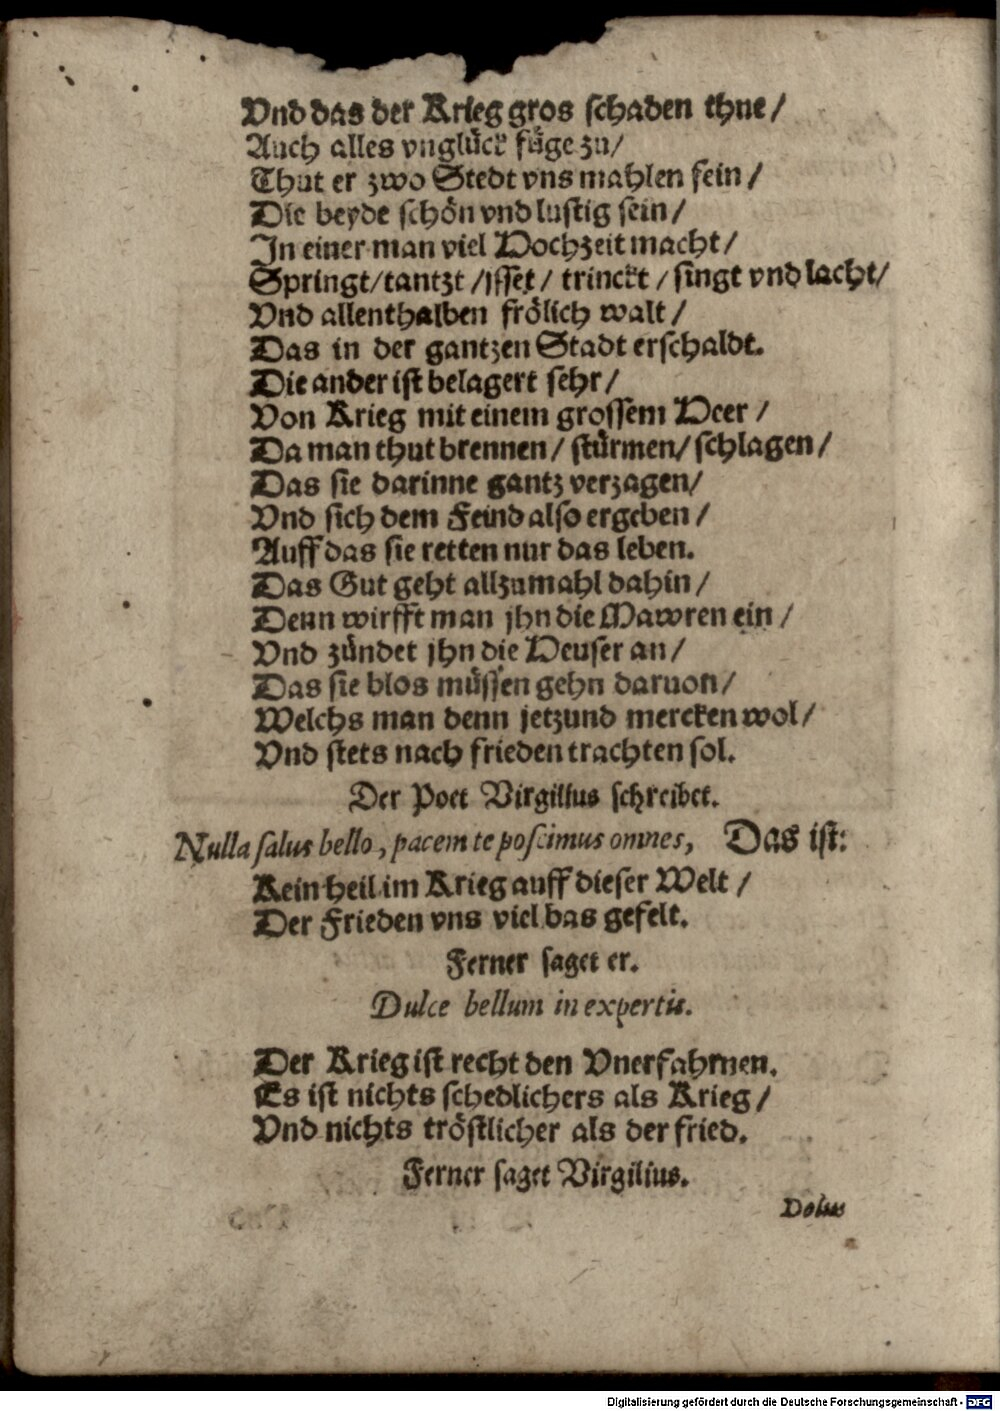 Vnd das der Krieg gros schaden thue /
Auch alles vnglück füge zu /
Thut er zwo Stedt vns mahlen fein /
Die beyde schön vnd lustig sein /
In einer man viel Hochzeit macht /
Springt / tantzt / jsset / trinckt / singt vnd lacht /
Vnd allenthalben frölich walt /
Das in der gantzen Stadt erschaldt.
Die ander ist belagert sehr /
Von Krieg mit einem grossem Heer /
Da man thut brennen / stürmen / schlagen /
Das sie darinne gantz verzagen /
Vnd sich dem Feind also ergeben /
Auff das sie retten nur das leben.
Das Gut geht allzumahl dahin /
Denn wirfft man jhn die Mawren ein /
Vnd zündet jhn die Heuser an /
Das sie blos müssen gehn daruon /
Welchs man denn jetzund mercken wol /
Vnd stets nach frieden trachten sol.
Der Poet Virgilius schreibet.
Nulla salus bello, pacem te poscimus omnes, Das ist:
Kein heil im Krieg auff dieser Welt /
Der Frieden vns viel bas gefelt.
Ferner saget er.
Dulce bellum in expertis.
Der Krieg ist recht den Vnerfahrnen.
Es ist nichts schedlichers als Krieg /
Vnd nichts tröstlicher als der fried.
Ferner saget Virgilius.
Dolus
Digitalisierung gefördert durch die Deutsche Forschungsgemeinschaft - DFG